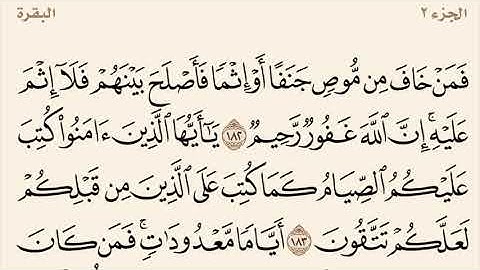 الجزء ٢
البقرة
فَمَنْ خَافَ مِن مُّوصٍ جَنَفًا أَوْ إِثْمًا فَأَصْلَحَ بَيْنَهُمْ فَلَآ إِثْمَ
عَلَيْهِ ۚ إِنَّ ٱللَّهَ غَفُورٌ رَّحِيمٌ ١٨٢ يَٰٓأَيُّهَا ٱلَّذِينَ ءَامَنُوا۟ كُتِبَ
عَلَيْكُمُ ٱلصِّيَامُ كَمَا كُتِبَ عَلَى ٱلَّذِينَ مِن قَبْلِكُمْ
لَعَلَّكُمْ تَتَّقُونَ ١٨٣ أَيَّامًا مَّعْدُودَٰتٍ ۚ فَمَن كَانَ